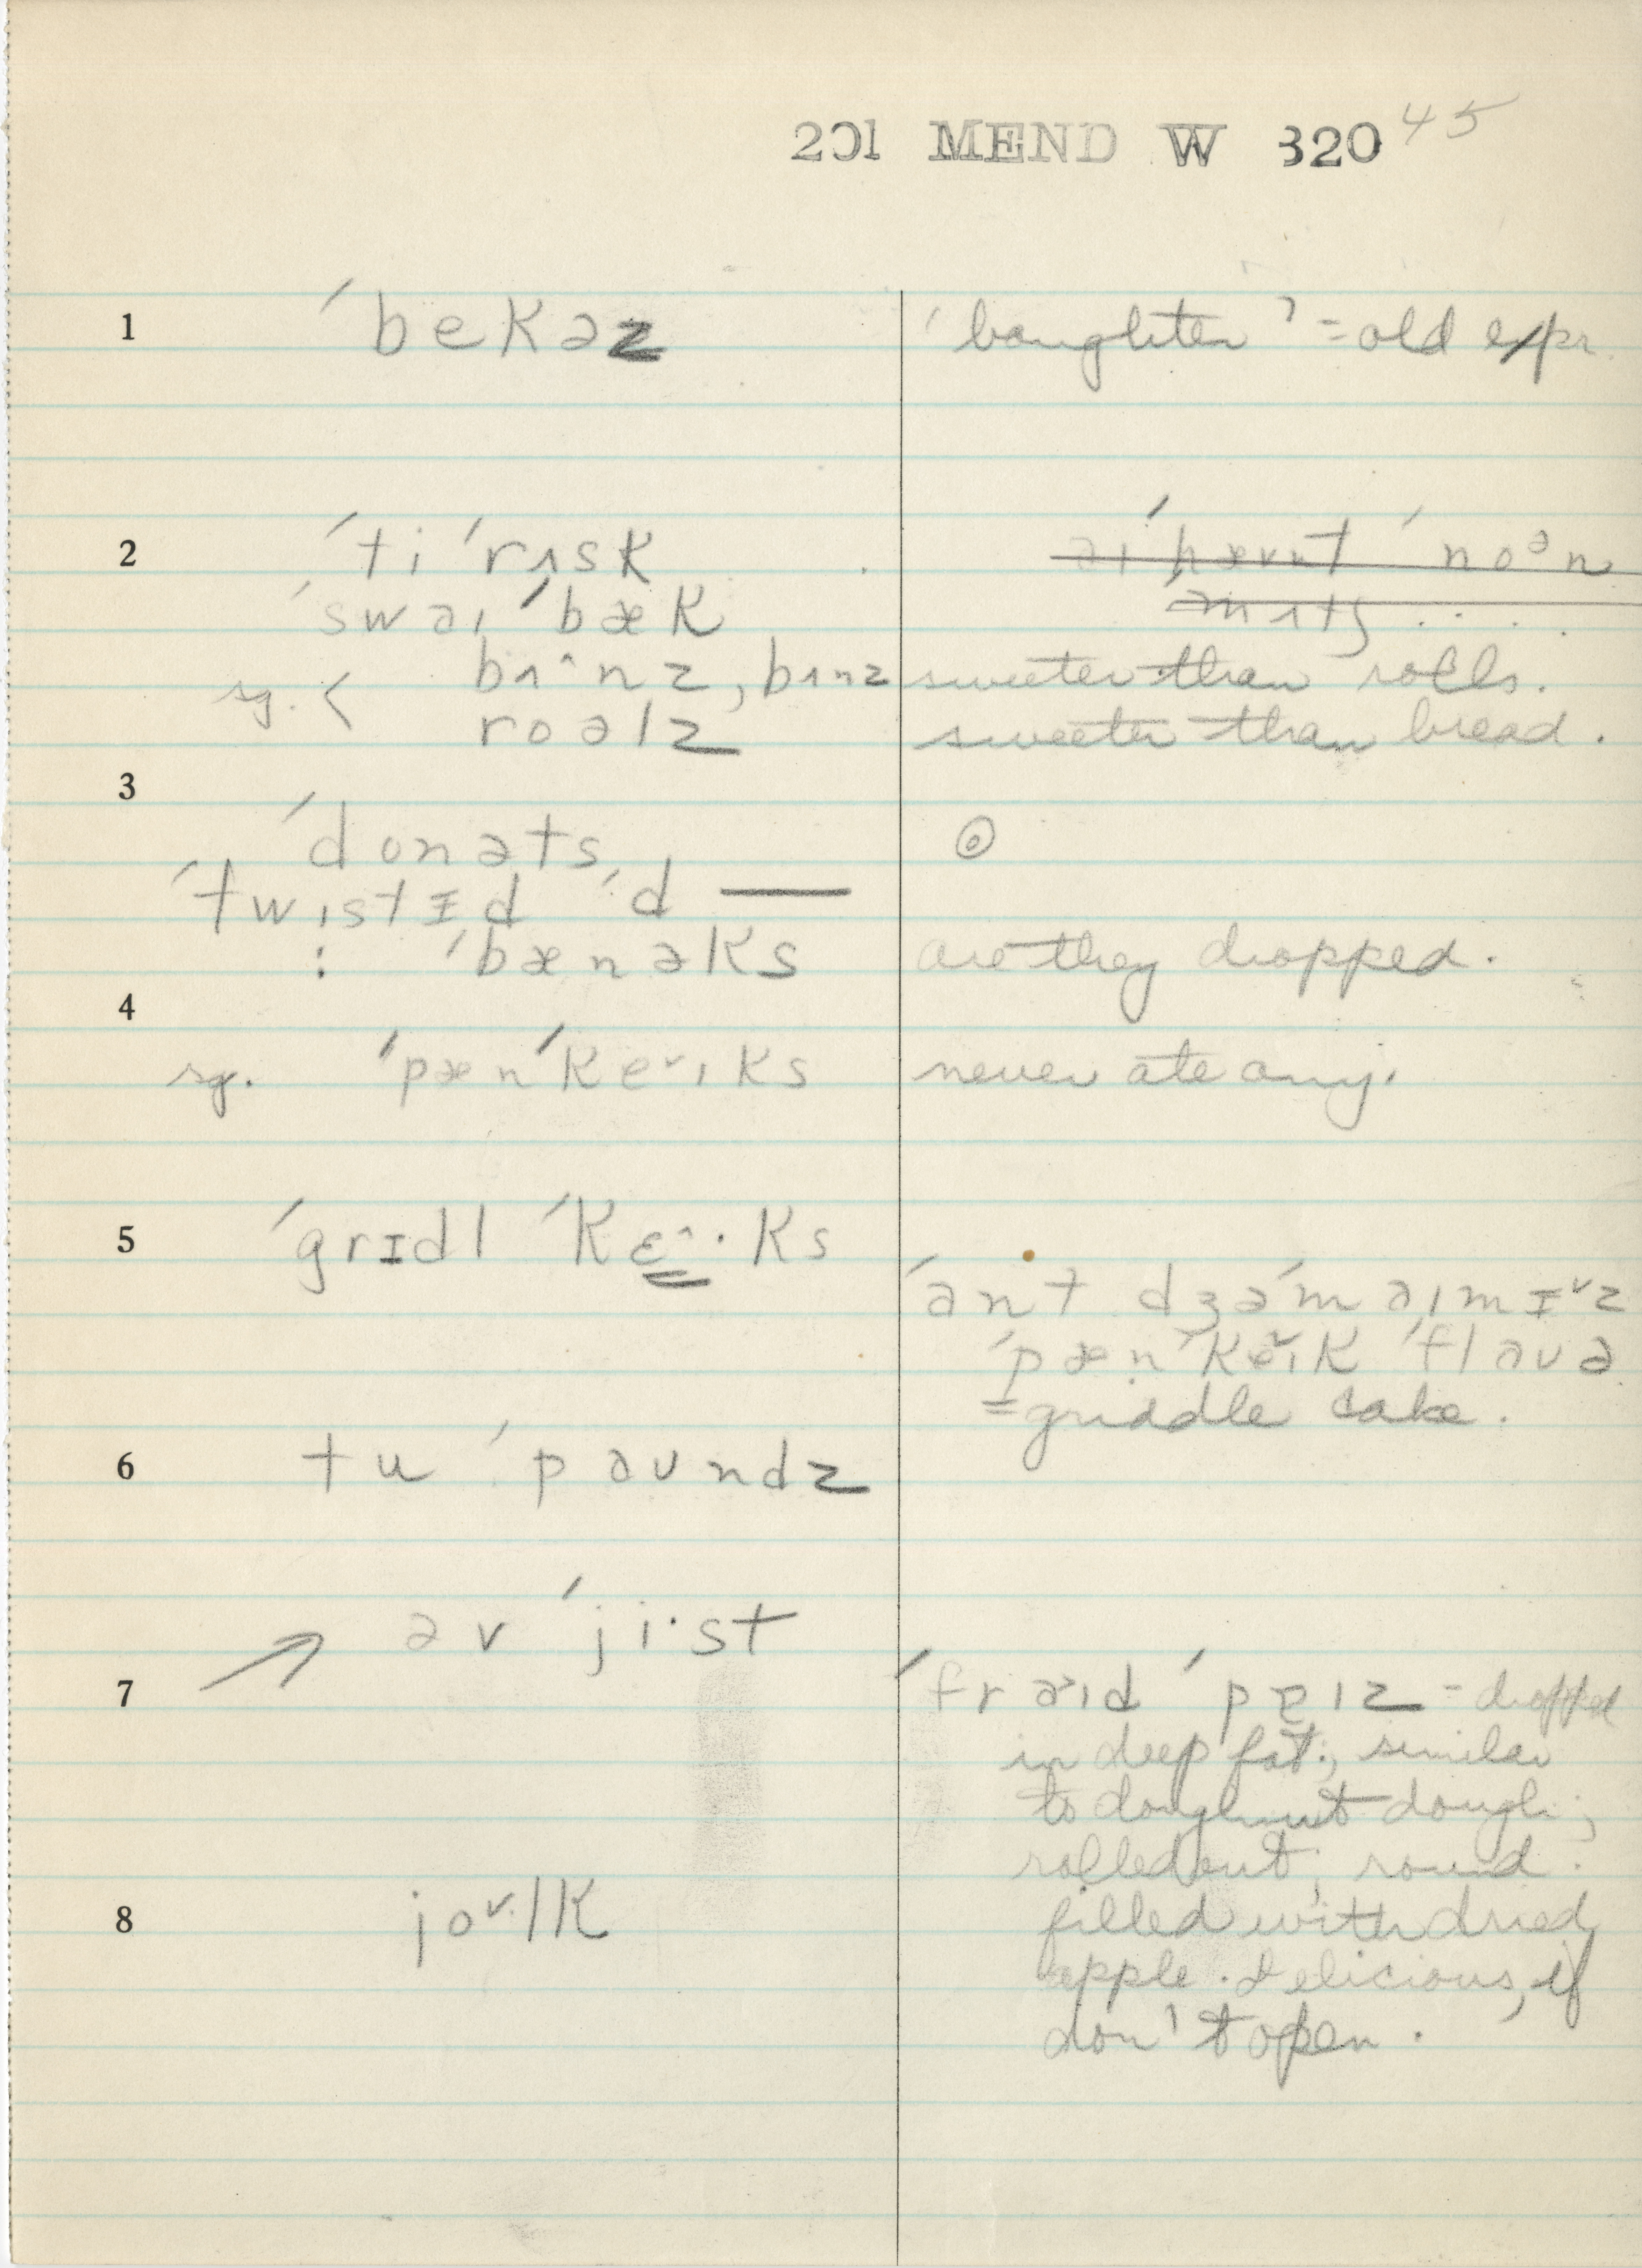 201 MEND W 320 45
1 ˈbekəz 'boughten' = old expr.
2 ˈti ˈrʌsk
ˈswaɪ ˈbæk
sg. < bʌ^nz, bʌnz sweeter than rolls.
roəlz sweeter than bread.
3
ˈdonəts,
ˈtwɪstɪd ˈd —
: ˈbænəks are they dropped.
4
sg. ˈpænˈkeˇɪks never ate any.
5 ˈgrɪdl ˈkɛ^·ks
ˈant dʒəˈmaɪmɪˇz
ˈpænˈkeˇɪk ˈflaʊə
= griddle cake.
6 tu ˈpaʊndz
əv ˈji·st
7 ˈfraˇɪd ˈpɐɪz = dropped
in deep fat; similar
to doughnut dough;
rolled out; round.
8 joˇlk filled with dried
apple. Delicious, if
don't open.